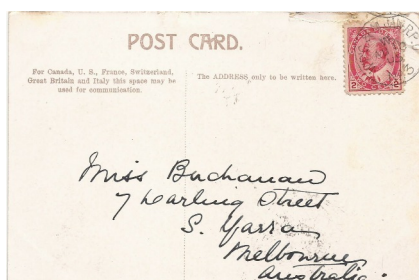 POST CARD.
For Canada, U. S., France, Switzerland,
Great Britain and Italy this space may be
used for communication.
The ADDRESS only to be written here.
2 2
Miss Buchanan
7 Darling Street
S. Yarra
Melbourne
Australia